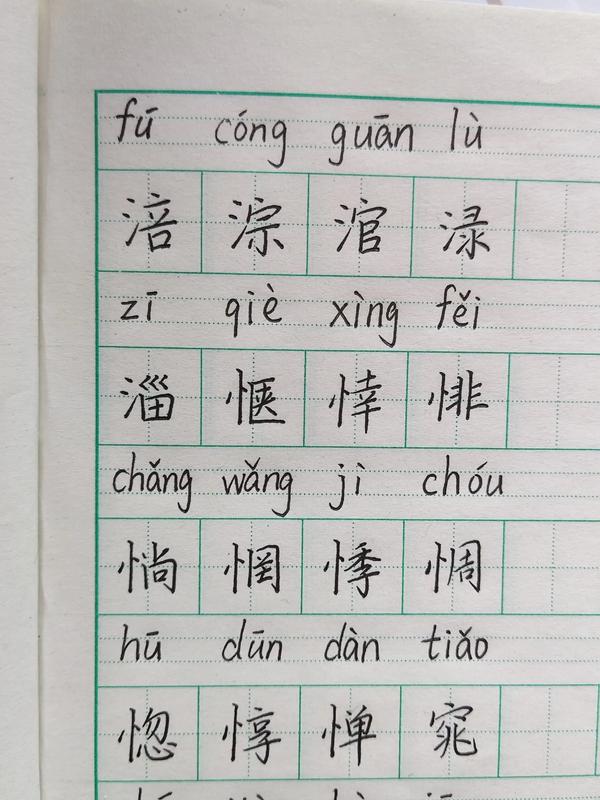 fū cóng guān lù
涪 淙 涫 渌
zī qiè xìng fěi
淄 惬 悻 悱
chǎng wǎng jì chóu
惝 惘 悸 惆
hū dūn dàn tiǎo
惚 惇 惮 窕